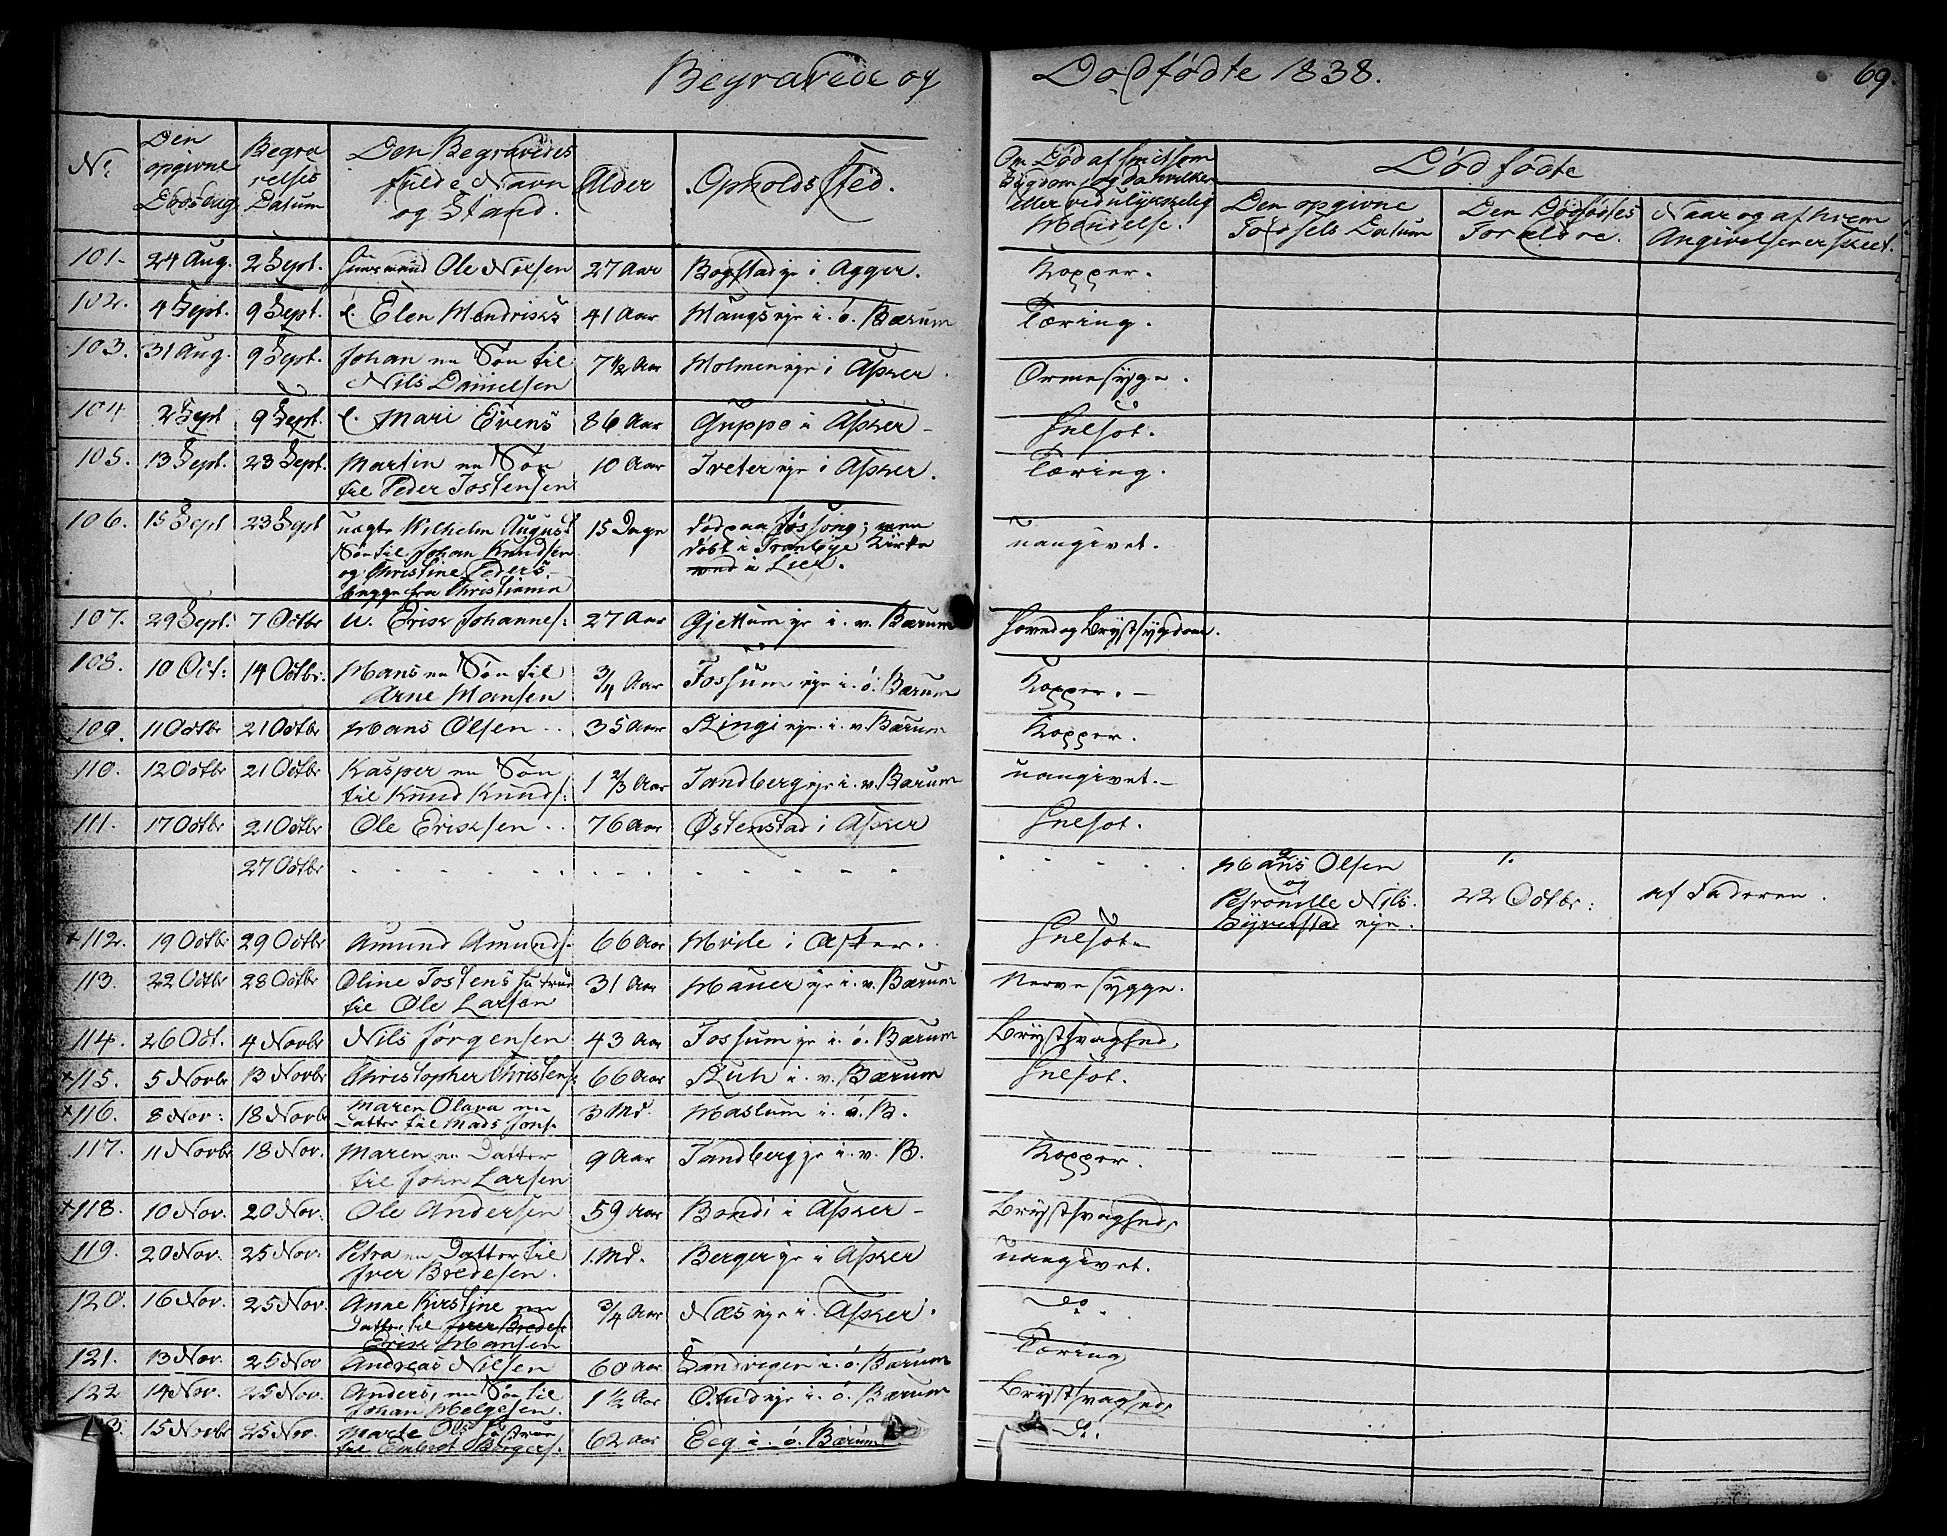 Begravede og Dødfødte 1838. 69.
No
Den opgivne Dødsdag
Begravelses Datum
Den Begravedes fulde Navn og Stand.
Alder
Opholds Sted.
Om Død af smitsom Sygdom, og da hvilken eller ved ulykkelig Hændelse.
Død fødte
Den opgivne Fødsels Datum
Den Dødfødtes Forældre.
Naar og af hvem Angivelsen er skeet.
101. 24 Aug. 2 Sept. Ole Nilsen 27 Aar Bogstadeje i Agger. Kopper.
102. 4 Sept. 9 Sept. E. Elen Hendriks 41 Aar Haugseje i. ø. Bærum Tæring.
103. 31 Aug. 9 Sept. Johan en Søn til
Nils Danielsen 7 1/2 Aar Holmeneje i Asker. Ormesyge.
104 2 Sept 9 Sept. E. Mari Evens 86 Aar Guppo i Asker - Inesot.
105. 13 Sept. 23 Sept. Martin en Søn
til Peder Tostensen 10 Aar Tvetereje i Asker. Tæring.
106. 15 Sept 23 Sept uægte Wilhelm August 15 Dage død paa Fossing; men
Søn til Johan Knudsen døbt i Tranbye Kirke
og Christine Peders. i Lier. uangivet.
begge fra Christiania
107. 29 Sept: 7 Octbr U. Erik Johannes: 27 Aar Gjettum eje i. v. Bærum Hoved og Brystsygdom.
108. 10 Oct: 14 Octbr. Hans en Søn til
Arne Hansen 3/4 Aar Fossum eje i. ø. Bærum Kopper. -
109. 11 Octbr 21 Octbr Hans Olsen 35 Aar Ringi eje i. v. Bærum Kopper.
110. 12 Octbr 21 Octbr Kasper en Søn
til Knud Knuds: 1 2/3 Aar Tandberg eje i. v. Bærum uangivet. -
111. 17 Octbr 21 Octbr Ole Eriksen 76 Aar Østenstad i Asker Inesot.
27 Octbr Hans Olsen 1.
og
Petronille Nils. 22 Octbr: af Faderen.
Byverstad eje.
+112. 19 Octbr 29 Octbr Amund Amunds. 66 Aar Hvile i Asker. Inesot -
113. 22 Octbr 28 Octbr Oline Tostens Hustrue
til Ole Larsen 31 Aar Hauer eje i. v. Bærum Nervesygge.
114. 26 Oct. 4 Novbr Nils Jørgensen 43 Aar Fossum eje i. ø. Bærum Brystsvaghed.
+115. 5 Novbr 13 Novbr Christopher Christens: 66 Aar i. v. Bærum Inesot.
+116. 8 Nov: 18 Novbr Maren Olava en
Datter til Mads Jons. 3 Md. Haslum i. ø. B.
117. 11 Novbr 18 Nov. Maren en Datter
til John Larsen 9 Aar Tandberg eje i. v. B. Kopper.
+118. 10 Nov. 20 Nov. Ole Andersen 59 Aar Bondi i Asker - Brystsvaghed.
119. 20 Nov. 25 Nov. Petra en Datter til
Iver Bredesen. 1. Md. Berger eje i Asker uangivet.
120. 16 Nov. 25 Nov. Anne Kirstine en
Datter til Iver Bredes
Erik Hansen 3/4 Aar Næs eje i. Asker. do.
121. 13 Nov. 25 Nov Andreas Nilsen 60 Aar Sandvigen i. ø. Bærum Tæring
122 14 Nov. 25 Nov. Anders, en Søn til
Johan Helgesen. 1 1/2 Aar eje i. ø. Bærum Brystsvaghed.
15 Novbr 25 Nov. Marte Ols Hustrue
til Berger. 62 Aar Eeg i. ø. Bærum d.